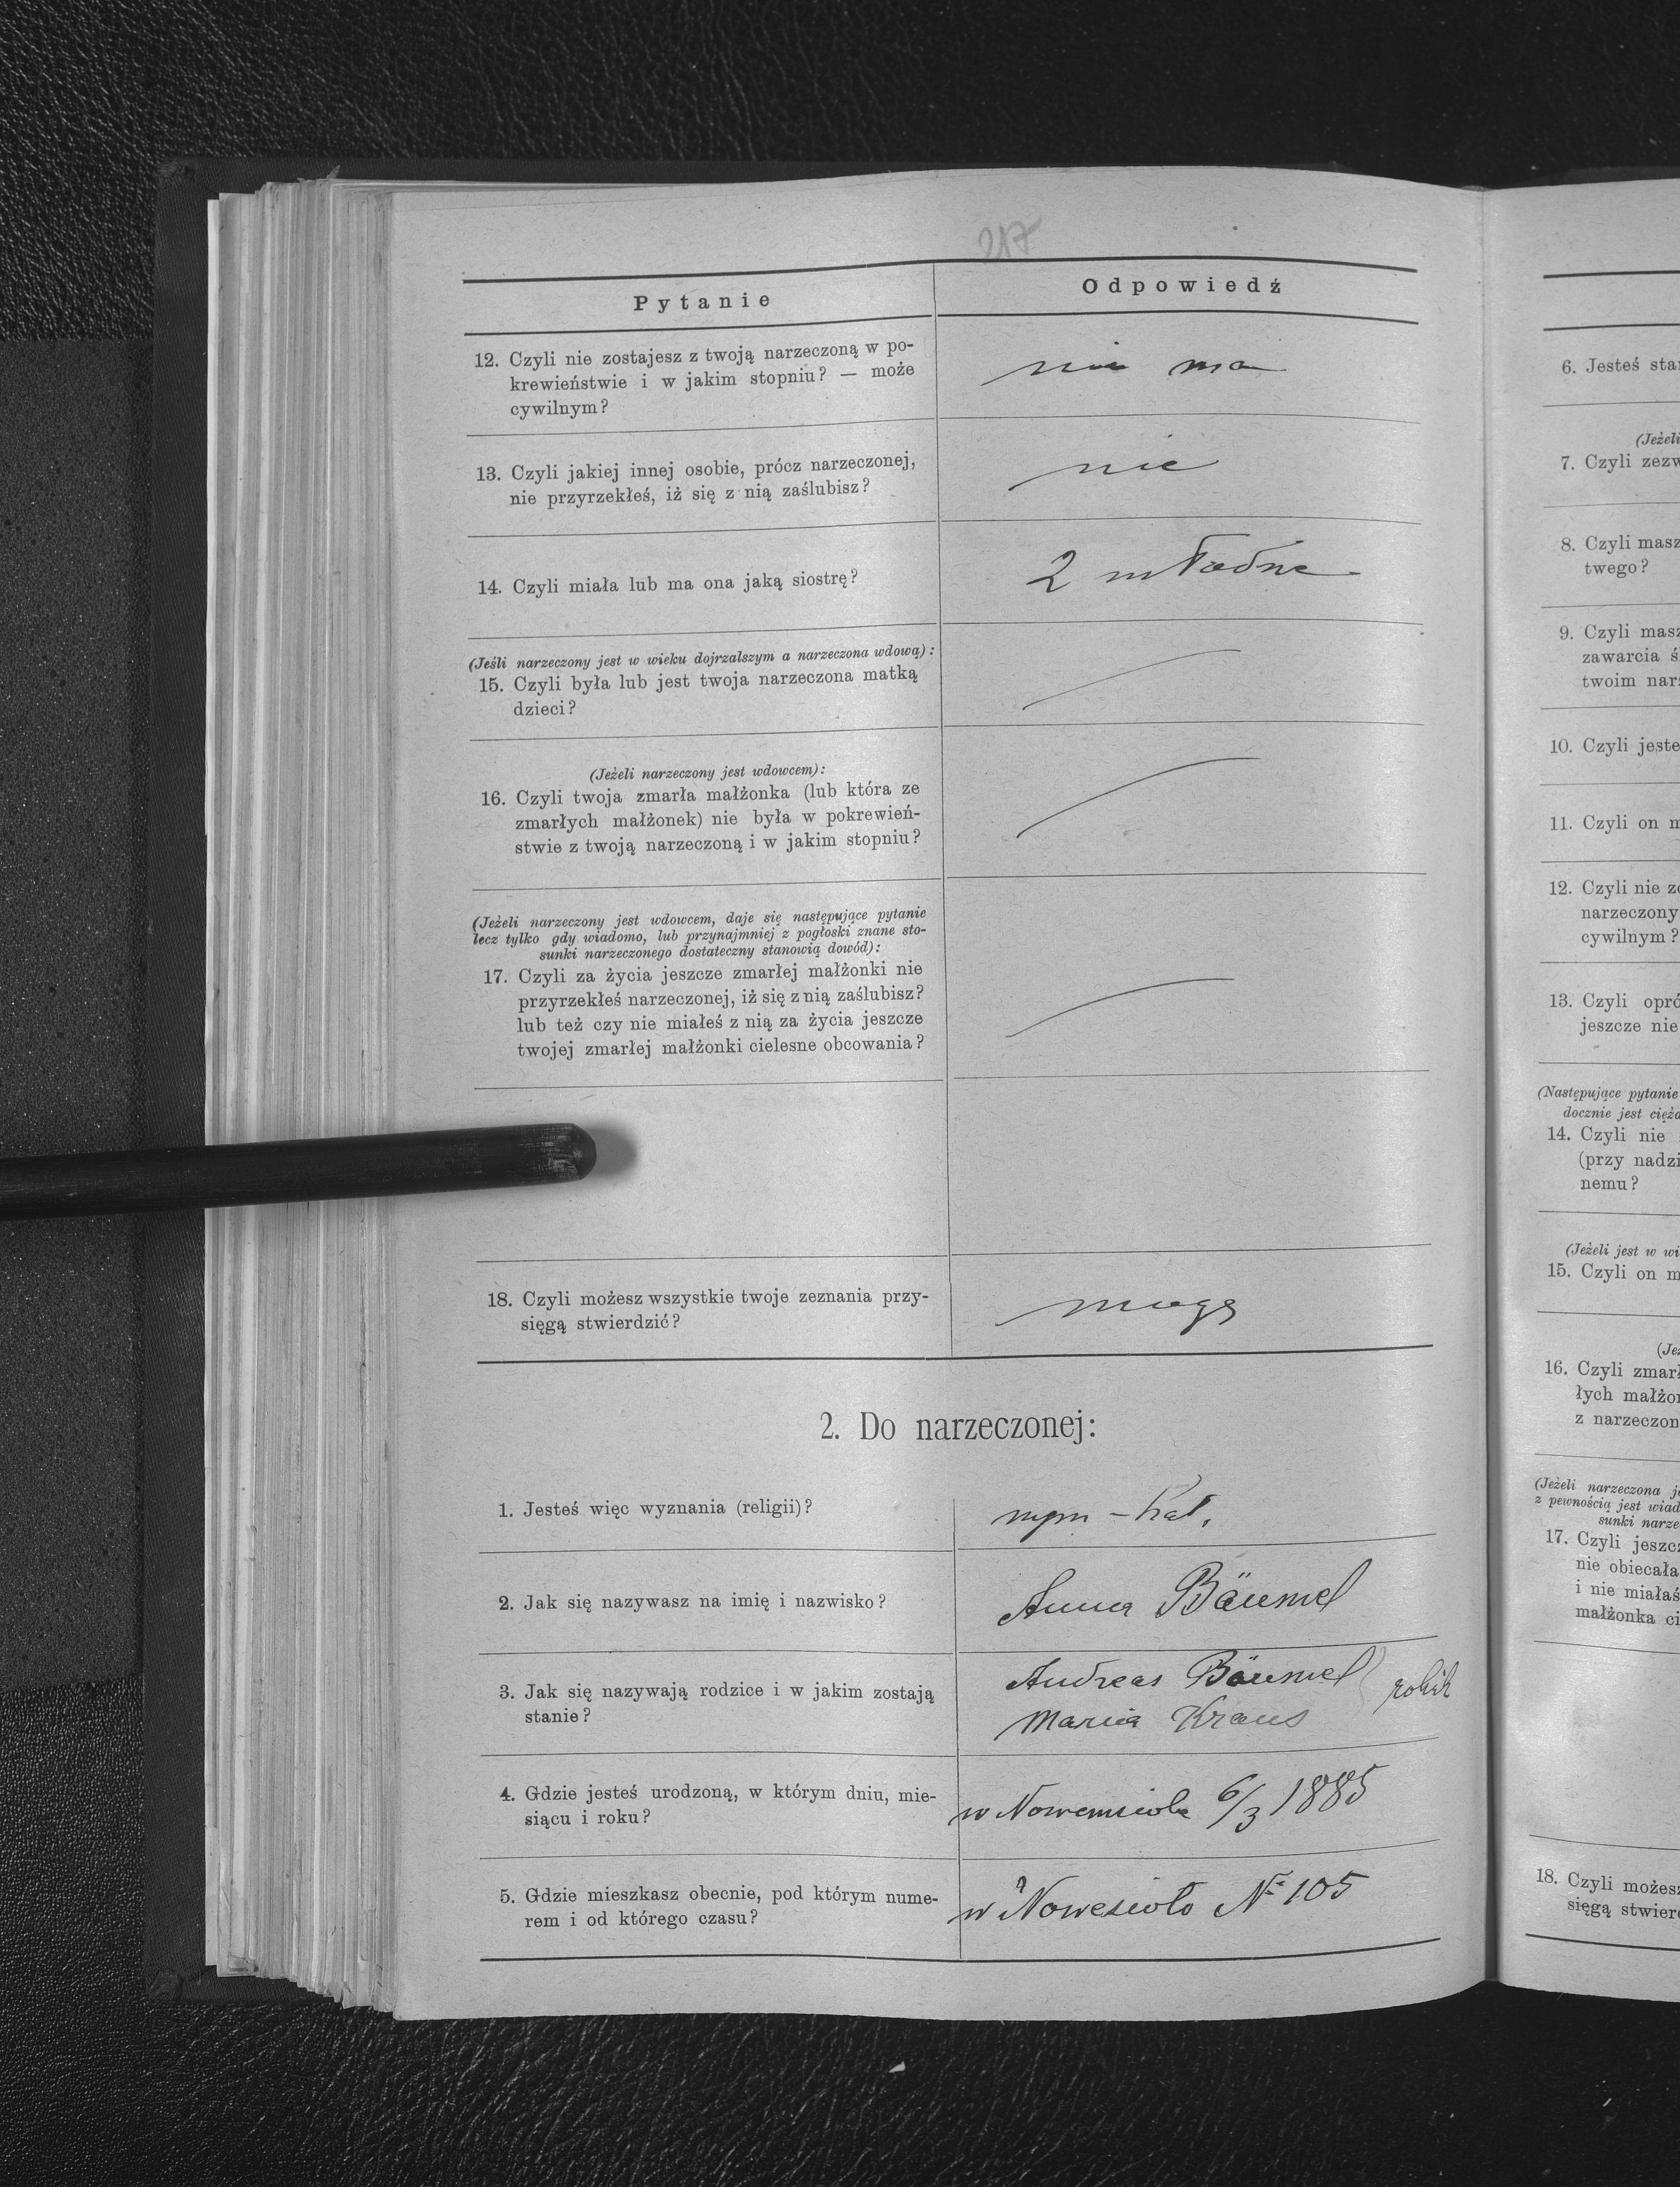 217
Pytanie
Odpowiedź
12. Czyli nie zostajesz z twoją narzeczoną w po-
krewieństwie i w jakim stopniu? — może
cywilnym?
nie ma
13. Czyli jakiej innej osobie, prócz narzeczonej,
nie przyrzekłeś, iż się z nią zaślubisz?
nie
14. Czyli miała lub ma ona jaką siostrę?
2
(Jeśli narzeczony jest w wieku dojrzalszym a narzeczona wdową):
15. Czyli była lub jest twoja narzeczona matką
dzieci?
(Jeżeli narzeczony jest wdowcem):
16. Czyli twoja zmarła małżonka (lub która ze
zmarłych małżonek) nie była w pokrewień-
stwie z twoją narzeczoną i w jakim stopniu?
(Jeżeli narzeczony jest wdowcem, daje się następujące pytanie
lecz tylko gdy wiadomo, lub przynajmniej z pogłoski znane sto-
sunki narzeczonego dostateczny stanowią dowód):
17. Czyli za życia jeszcze zmarłej małżonki nie
przyrzekłeś narzeczonej, iż się z nią zaślubisz?
lub też czy nie miałeś z nią za życia jeszcze
twojej zmarłej małżonki cielesne obcowania?
18. Czyli możesz wszystkie twoje zeznania przy-
sięgą stwierdzić?
mogę
2. Do narzeczonej:
1. Jesteś więc wyznania (religii)?
rzym-kat.
2. Jak się nazywasz na imię i nazwisko?
Anna Bäumel
3. Jak się nazywają rodzice i w jakim zostają
stanie?
Andreas Bäumel
Maria Kraus
4. Gdzie jesteś urodzoną, w którym dniu, mie-
siącu i roku?
w Nowemsiole 6/3 1885
5. Gdzie mieszkasz obecnie, pod którym nume-
rem i od którego czasu?
w Nowesioło № 105
6. Jesteś
(Jeżeli
7. Czyli
8. Czyli masz
twego?
9. Czyli masz
zawarcia
twoim
10. Czyli
11. Czyli on
12. Czyli nie
narzeczony
cywilnym?
13. Czyli
jeszcze nie
(Następujące pytanie
docznie jest
14. Czyli nie
(przy
nemu?
(Jeżeli jest w
15. Czyli on
16. Czyli
łych
z
(Jeżeli narzeczona
z pewnością jest
sunki
17. Czyli
nie obiecała
i nie miałaś
małżonka
18. Czyli możesz
sięgą